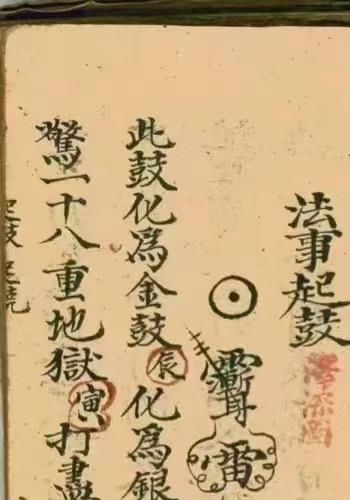 法事起鼓
雷
此鼓化爲金鼓辰化爲銀
驚一十八重地獄寅打盡
起鼓